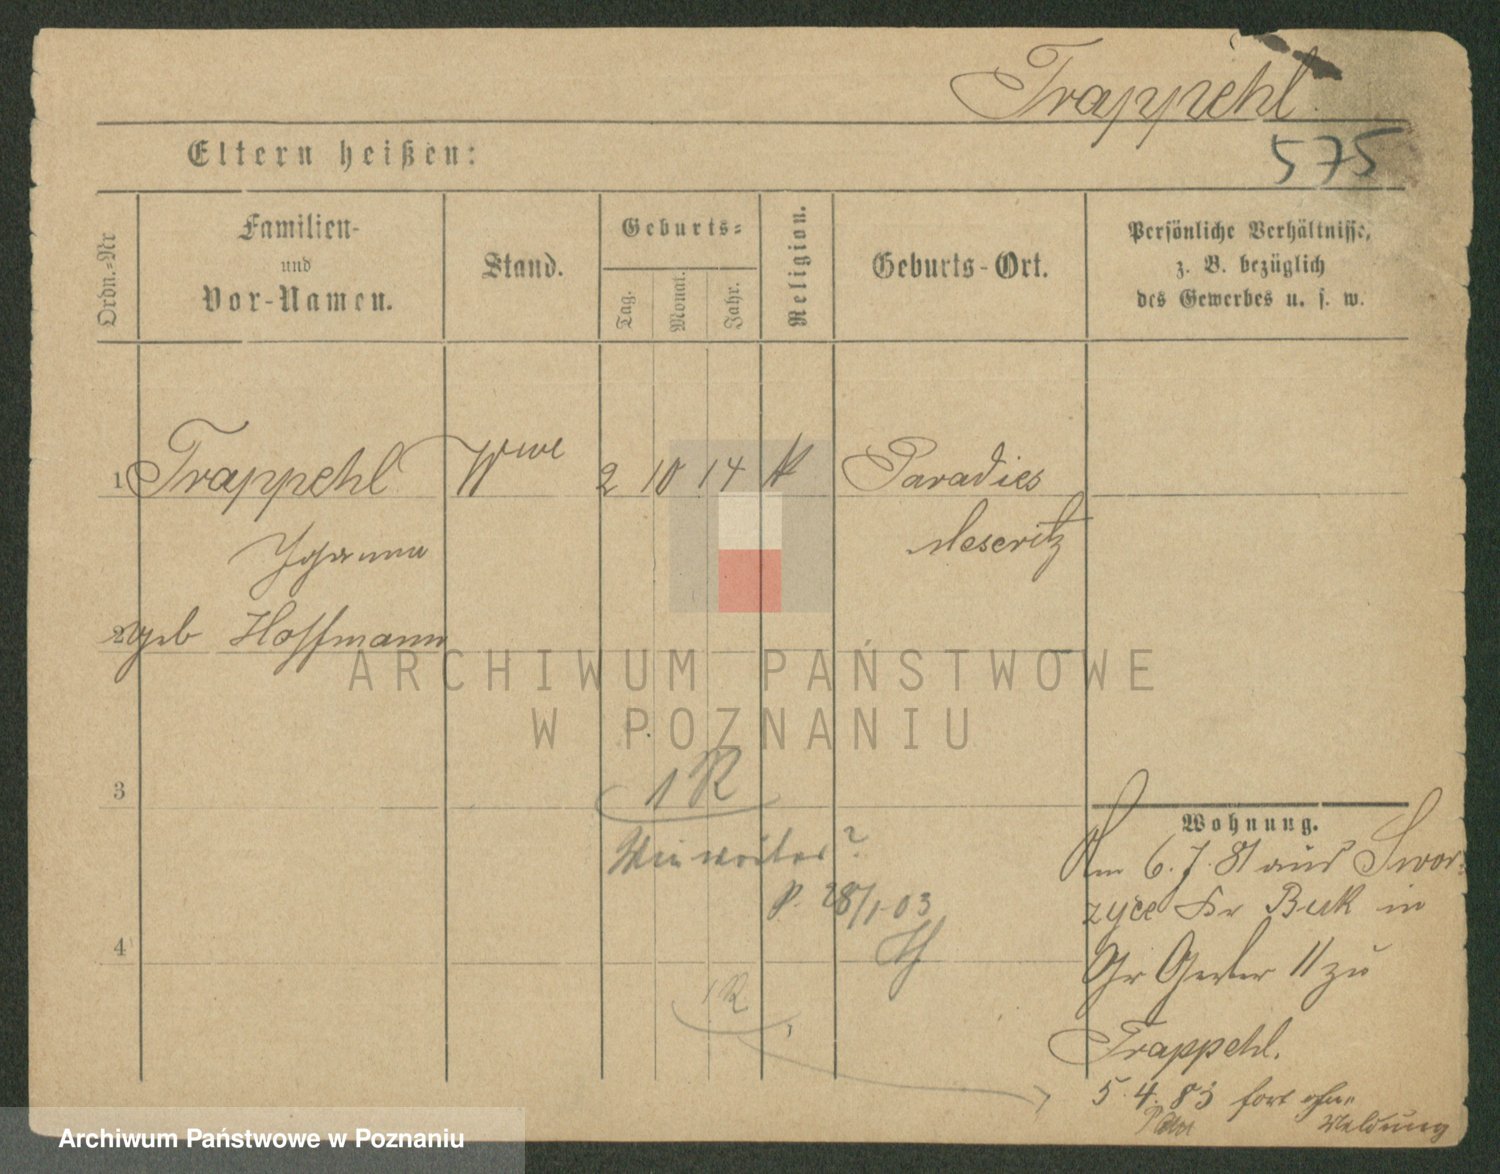 Trappehl
575
Eltern heißen:
Ordn.=Nr
Familien-
und
Vor-Namen.
Stand.
Geburts=
Tag.
Monat.
Jahr.
Religion.
Geburts-Ort.
Persönliche Verhältnisse,
z. B. bezüglich
des Gewerbes u. s. w.
1 Trappehl Wwe 2 10 14 K Paradies
Johanna Meseritz
2 geb Hoffmann
ARCHIWUM PAŃSTWOWE
W POZNANIU
1 R
3
Wohnung.
Wie weiter?
Am 6.7.81 aus Swor-
P. 28/1.03
zyce Kr Buk in
4
Gr Gerber 11 zu
1 R
Trappehl.
5.4.83 fort ohne
Meldung
Archiwum Państwowe w Poznaniu